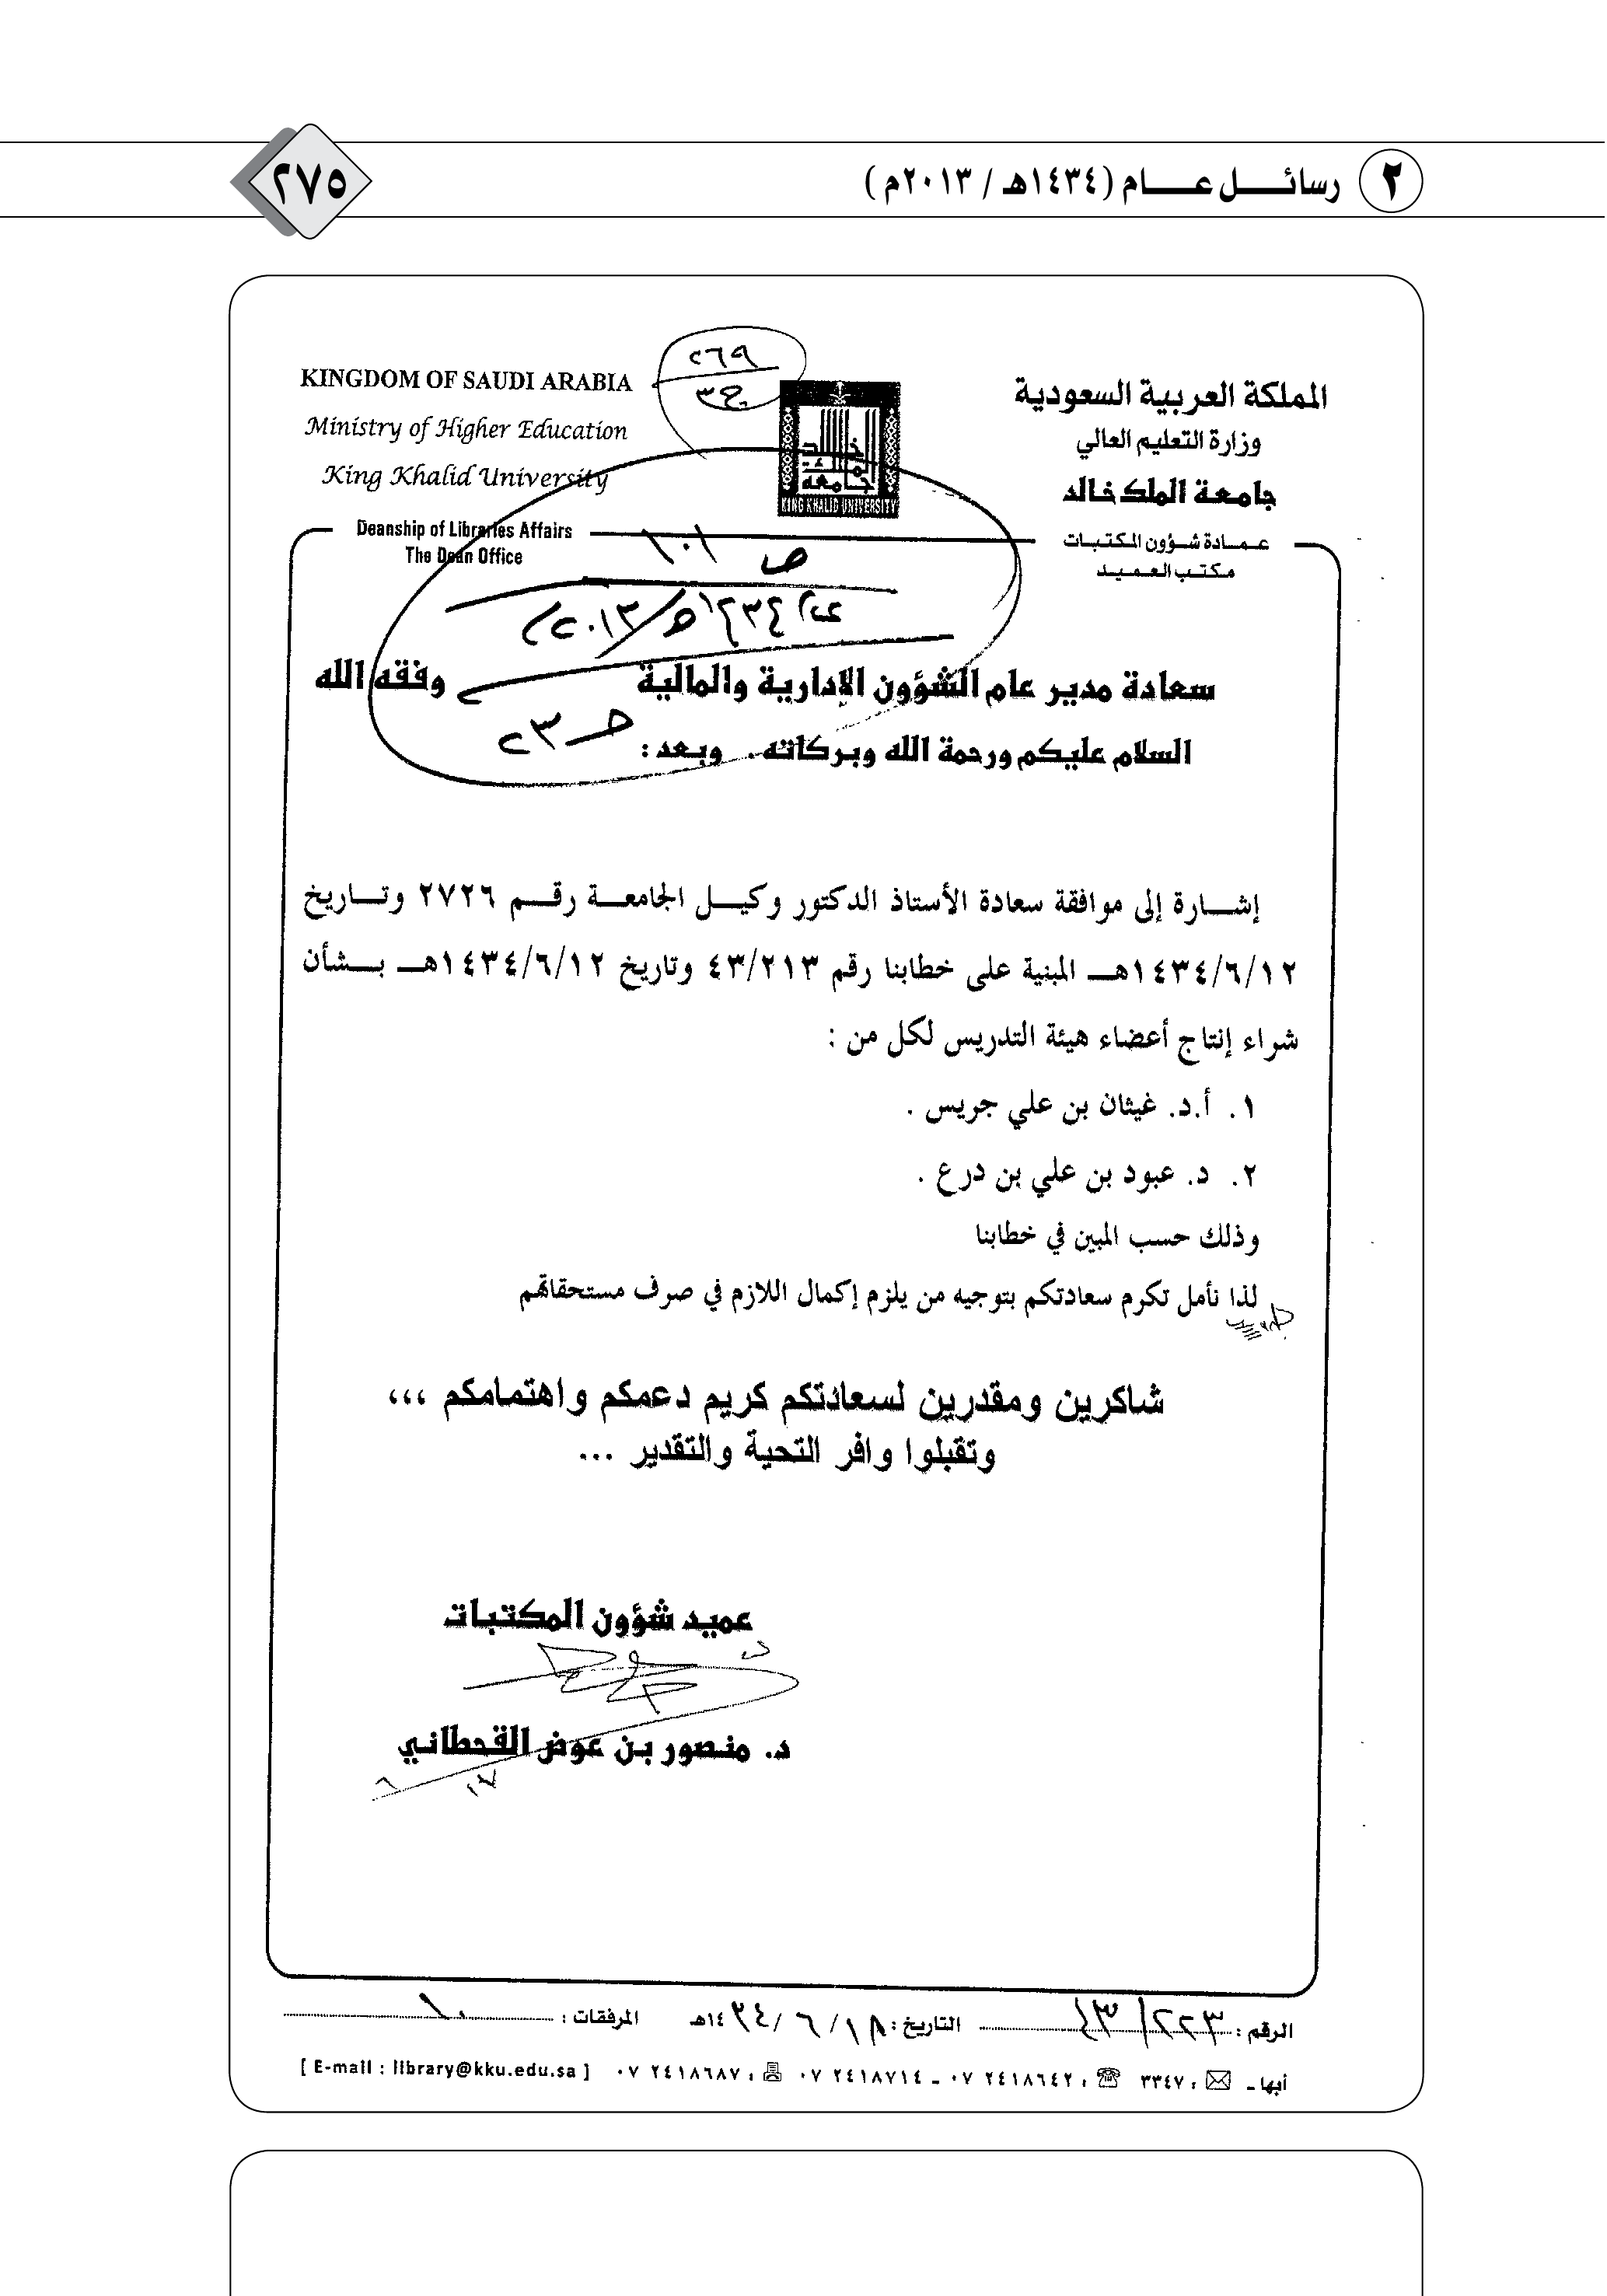 ٢ رسائل عام (١٤٣٤هـ / ٢٠١٣م)
٢٧٥
المملكة العربية السعودية
وزارة التعليم العالي
جامعة الملك خالد
عمادة شؤون المكتبات
مكتب العميد
٢٦٩
ج٣
KING KHALID UNIVERSITY
KINGDOM OF SAUDI ARABIA
Ministry of Higher Education
King Khalid University
Deanship of Libraries Affairs
The Dean Office
ص ١٠١
١٤٣٤هـ/٢٠١٣م
سعادة مدير عام الشؤون الإدارية والمالية وفقه الله
السلام عليكم ورحمة الله وبركاته . وبعد :
إشارة إلى موافقة سعادة الأستاذ الدكتور وكيل الجامعة رقم ٢٧٢٦ وتاريخ
١٤٣٤/٦/١٢هـ المبنية على خطابنا رقم ٤٣/٢١٣ وتاريخ ١٤٣٤/٦/١٢هـ بشأن
شراء إنتاج أعضاء هيئة التدريس لكل من :
١. أ.د. غيثان بن علي جريس .
٢. د. عبود بن علي بن درع .
وذلك حسب المبين في خطابنا
لذا نأمل تكرم سعادتكم بتوجيه من يلزم إكمال اللازم في صرف مستحقاتهم
شاكرين ومقدرين لسعادتكم كريم دعمكم واهتمامكم ،،،
وتقبلوا وافر التحية والتقدير ...
عميد شؤون المكتبات
د. منصور بن عوض القحطاني
الرقم : التاريخ : ١٨/ ٦ /١٤٣٤هـ المرفقات :
أبها ـ : ٣٣٤٧ : ٢٤١٨٦٤٢ ٠٧ ـ ٢٤١٨٧١٤ ٠٧ : ٢٤١٨٦٨٧ ٠٧ [ E-mail : library@kku.edu.sa ]